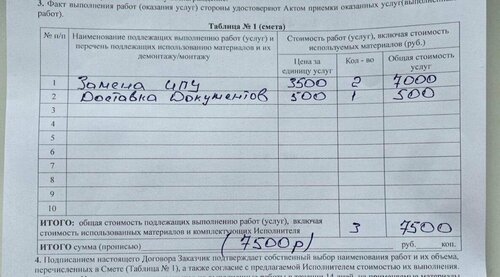 3. Факт выполнения работ (оказания услуг) стороны удостоверяют Актом приемки оказанных услуг(выполненных
работ).
Таблица № 1 (смета)
№ п/п Наименование подлежащих выполнению работ (услуг) и перечень подлежащих использованию материалов и их демонтажу/монтажу Стоимость работ (услуг), включая стоимость используемых материалов (руб.)
Цена за единицу услуг Кол - во Общая стоимость услуг
1 Замена ИПУ 3500 2 7000
2 Доставка Документов 500 1 500
3
4
5
6
7
8
9
10
ИТОГО: общая стоимость подлежащих выполнению работ (услуг), включая
стоимость использованных материалов и комплектующих Исполнителя 3 7500
ИТОГО сумма (прописью) (7500р) руб. коп.
4. Подписанием настоящего Договора Заказчик подтверждает собственный выбор наименования работ и их объема,
перечисленных в Смете (Таблица № 1), а также согласие с предлагаемой Исполнителем стоимостью их выполнения.